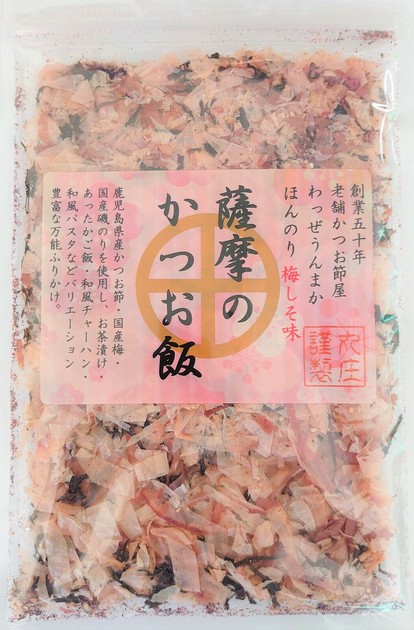 創業五十年
老舗かつお節屋
わっぜうんまか
ほんのり梅しそ味
薩摩の
かつお飯
鹿児島県産かつお節・国産梅・
国産磯のりを使用し、お茶漬け・
あったかご飯・和風チャーハン・
和風パスタなどバリエーション
豊富な万能ふりかけ。
謹製